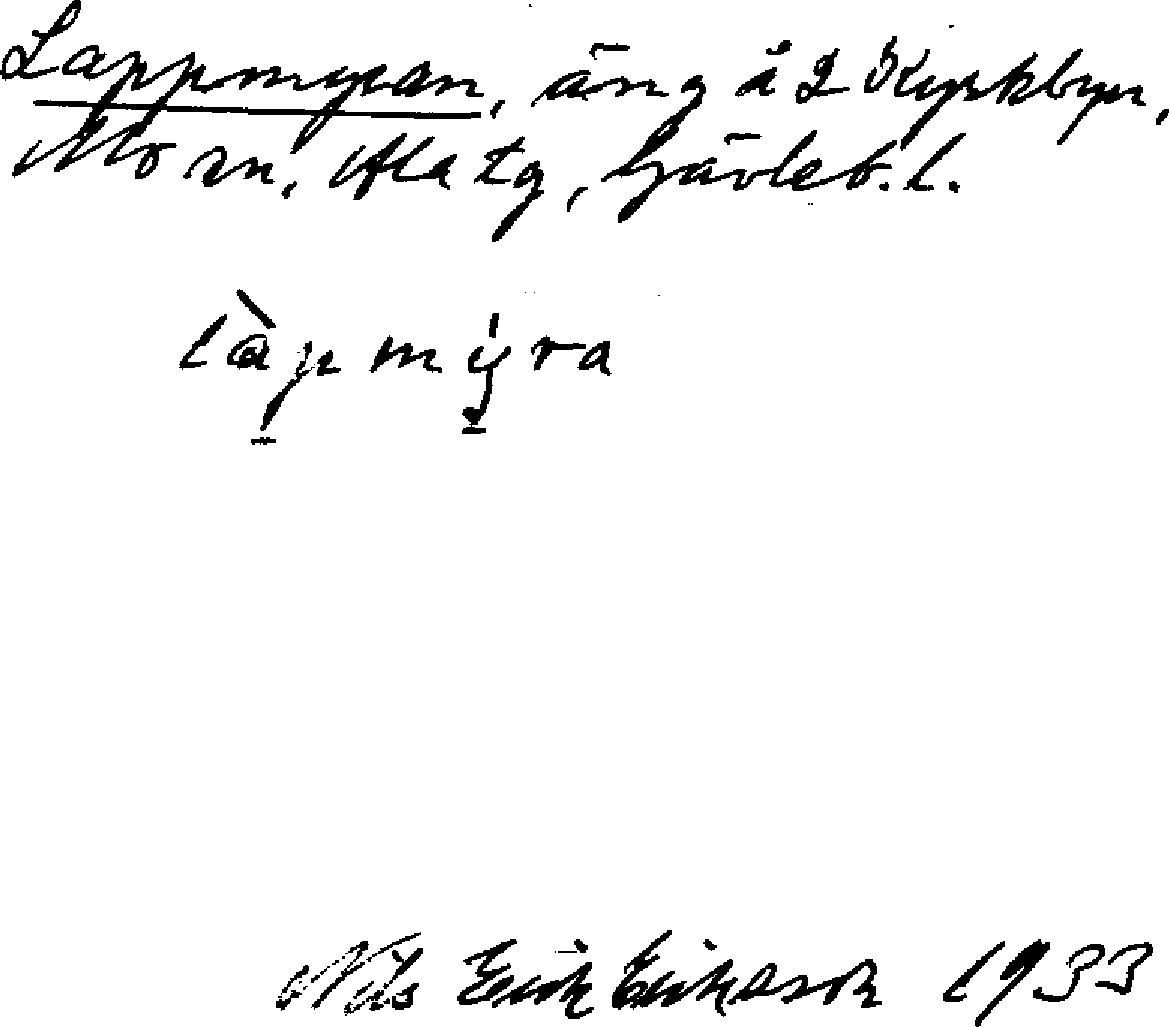 Lappmyran, äng å 2 Kyrkbyn,
Mo sn, Ala tg, Gävleb. l.
làpmyra
Nils Erik Eriksson 1933